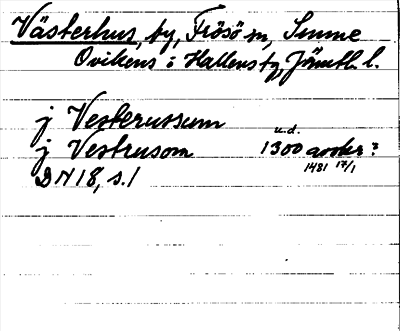 Västerhus, by, Frösö sn, Sunne
Ovikens o Hallens tg, Jämtl. l.
j Vesterussum
j Vestrusom u.d. 1300 avskr:
1481 17/1
DN 18, s. 1